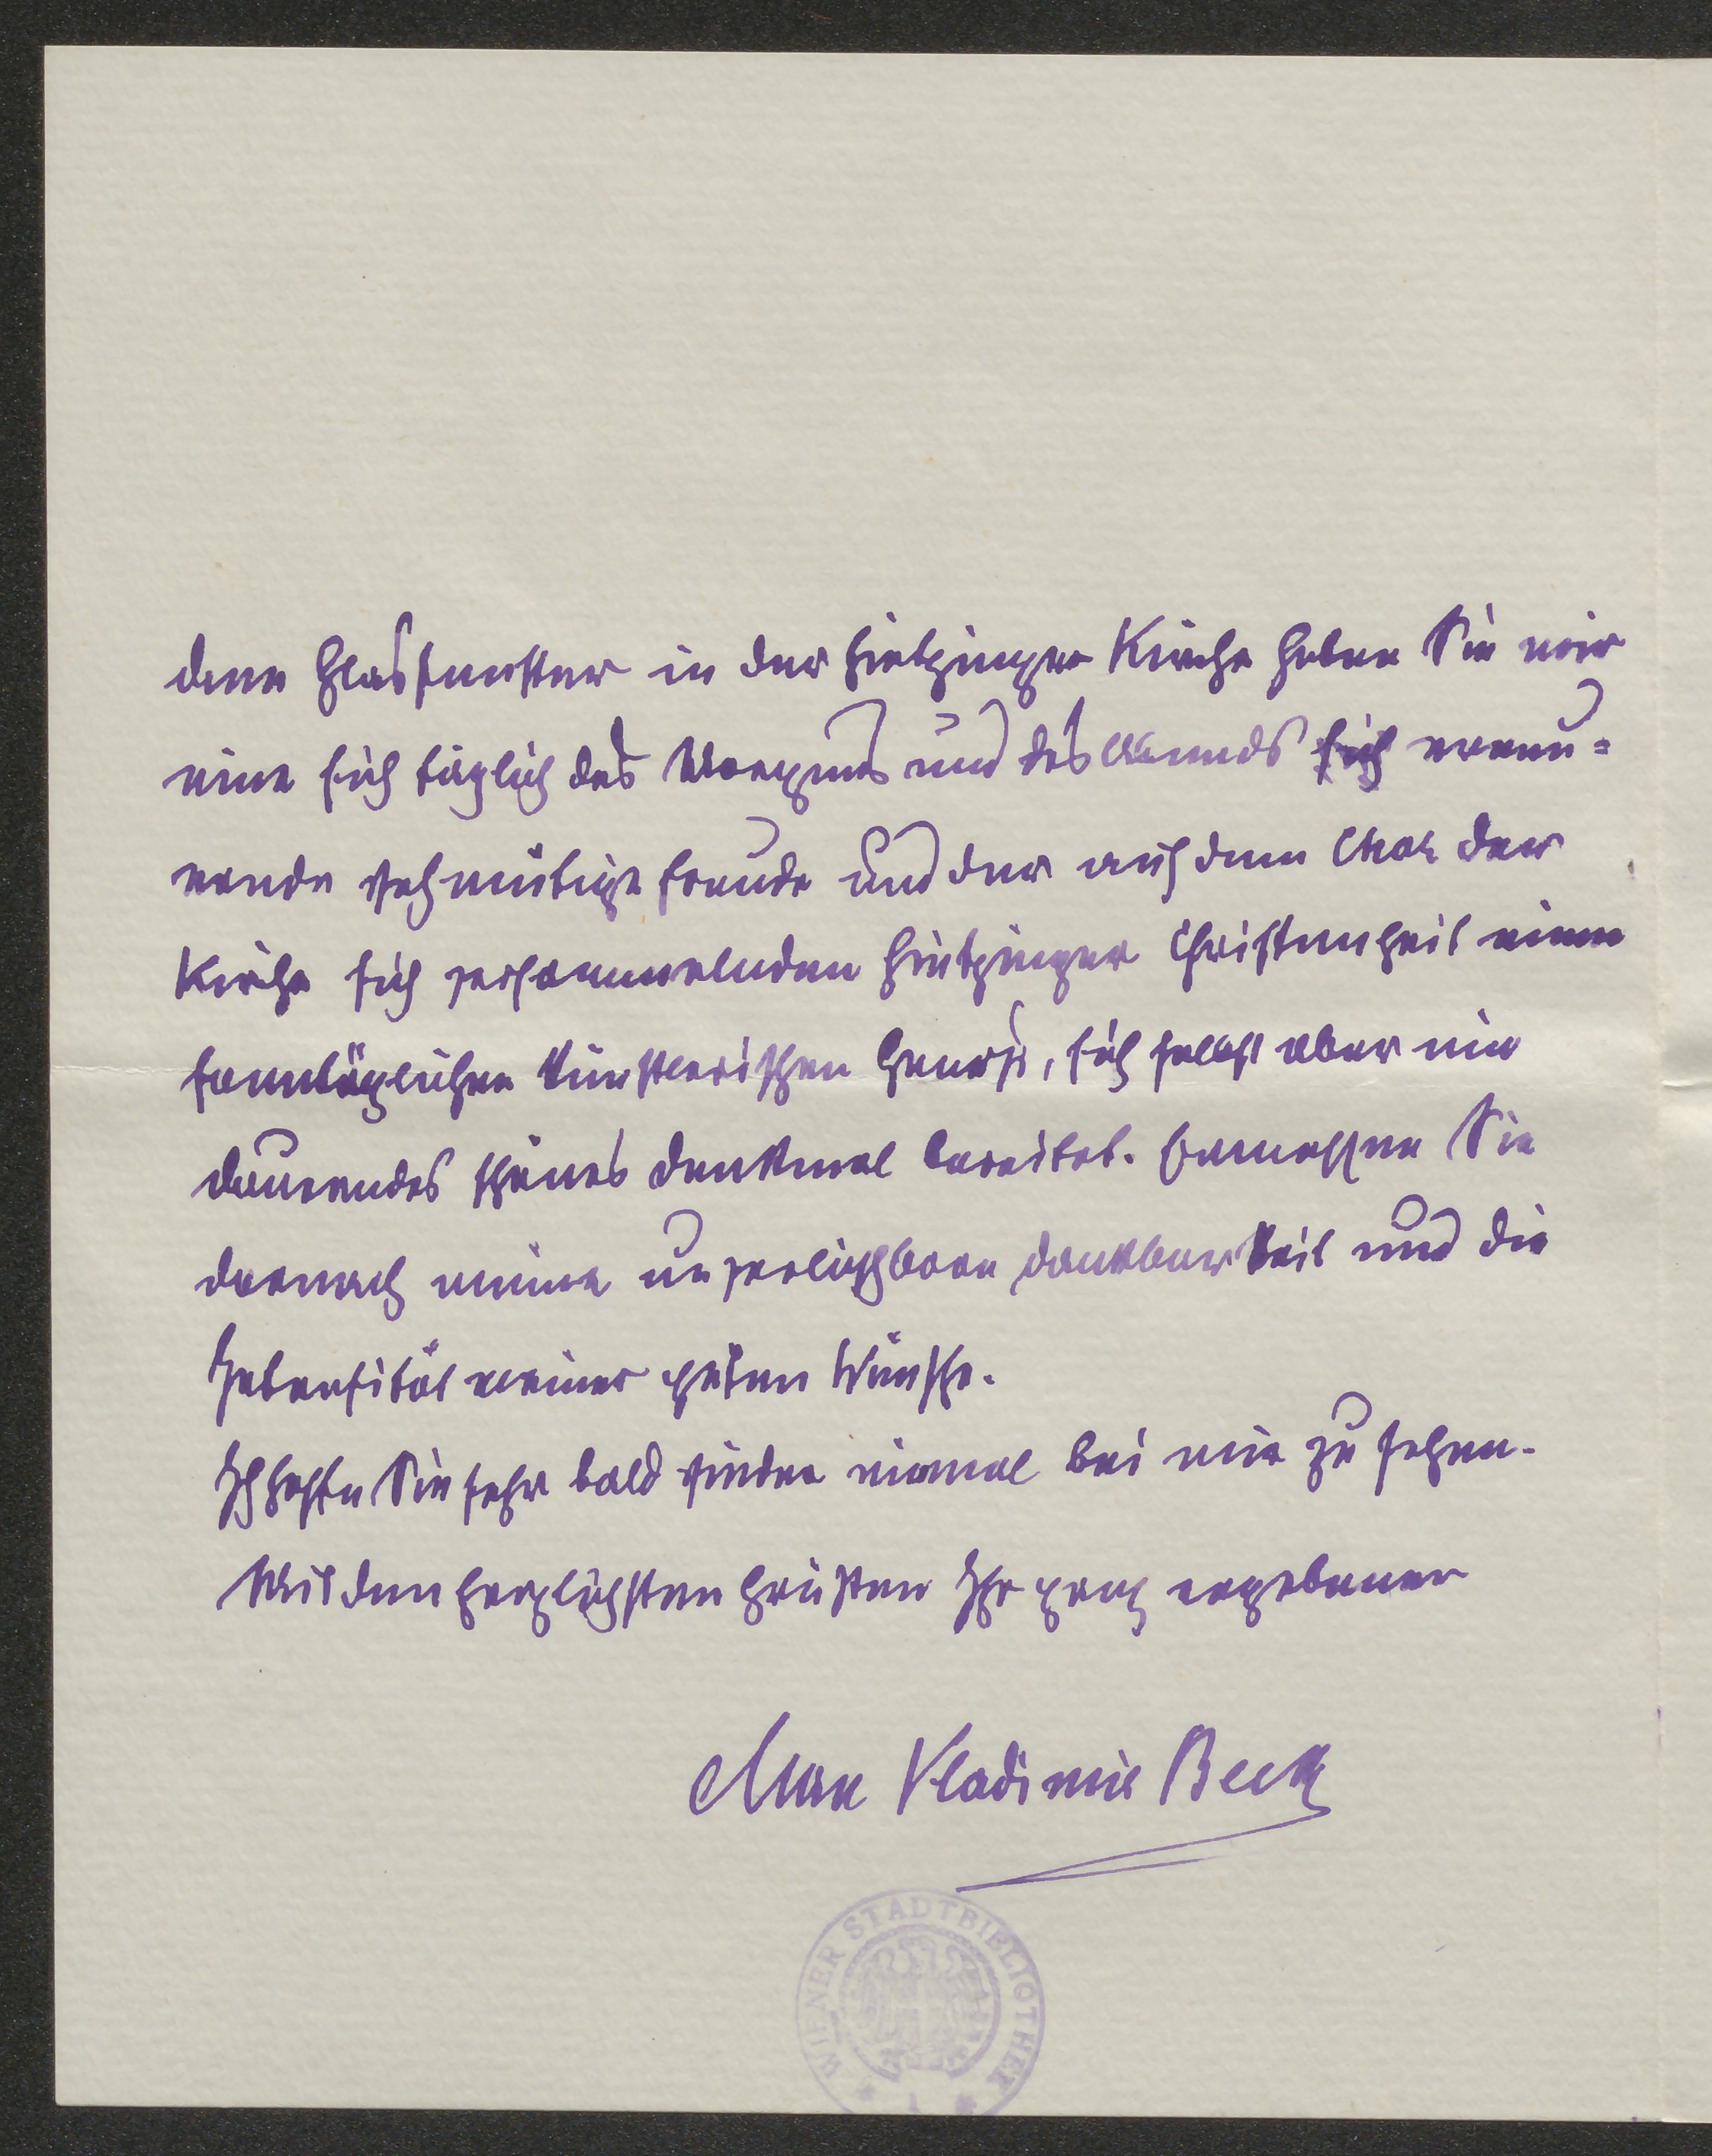 dem Glasfenster in der Hietzinger Kirche haben Sie mir
eine sich täglich des Morgens und des Abends sich erneu=
ernde wehmütige Freude und der auf dem Chor der
Kirche sich versammelnden Hietzinger Christenheit einen
sonntäglichen künstlerischen Genuß, sich selbst aber ein
dauerndes schönes Denkmal bereitet. Ermessen Sie
darnach meine unverlöschbare Dankbarkeit und die
Intensität meiner guten Wünsche.
Ich hoffe Sie sehr bald wieder einmal bei mir zu sehen.
Mit den herzlichsten Grüßen Ihr ganz ergebener
Max Vladimir Beck
WIENER STADTBIBLIOTHEK